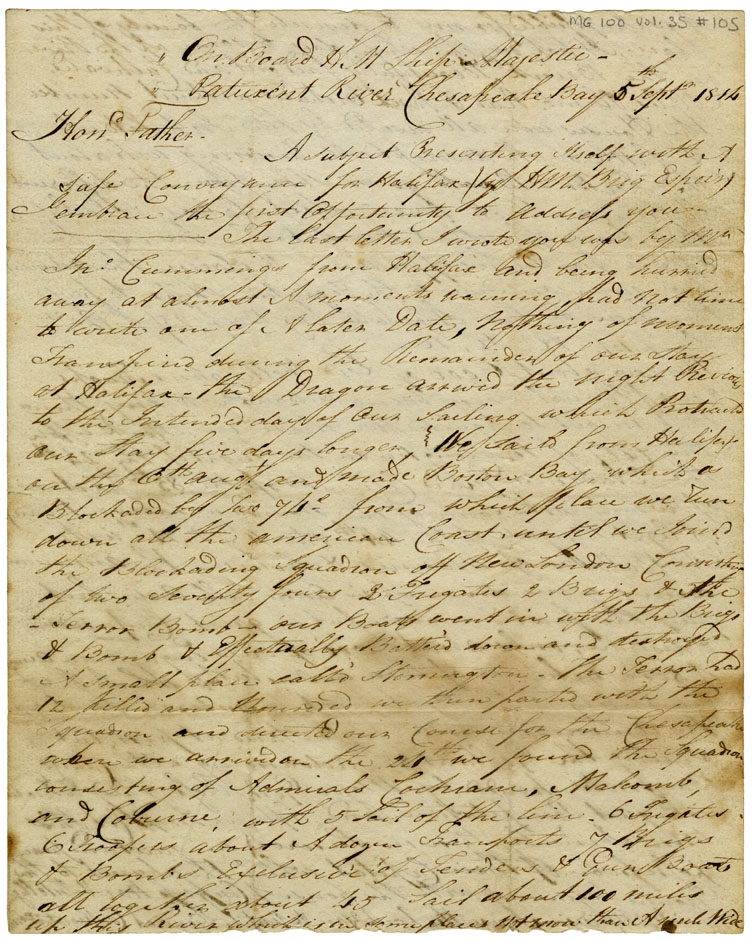 MG 100 Vol. 35 #105
On Board H M Ship Majestic -
Patuxent River Chesapeake Bay 5th Septr 1814
Hond Father -
A subject Presenting itself with A
safe Conveyance for Halifax (by HM Brig Espoir)
I embrace the first Opportunity to address you -
The last letter I wrote you was by Mr
Jno Cummings from Halifax and being hurried
away at almost A moments warning, had not time
to write one of A later Date, Nothing of moment
Transpired during the Remainder of our Stay
at Halifax - the Dragon arrived the night Previous
to the Intended day of our Sailing which Protracted
our Stay five days longer, We Saild from Halifax
on the 6th Augt and made Boston Bay which is
Blockaded by two 74s from which place we run
down all the american Coast untill we Joind
the Blockading Squadron off New London Consisting
of two Seventy fours 2 Frigates 2 Brigs & the
Terror Bomb - our Boats went in with the Brigs
& Bomb & Effectually Batterd down and destroyed
A Small place calld Stonington - the Terror had
12 killed and Wounded we then parted with the
Squadron and directed our Course for the Chesapeake
when we arrived on the 24th we found the Squadron
consisting of Admirals Cochrane, Malcomb,
and Coburne, with 5 Sail of the line - 6 Frigates -
6 troopers about A dozen Transports 7 Brigs
& Bombs Exclusive of Tenders & Gun Boats
all together about 45 Sail about 100 miles
up this River which is in some places not more than A mile Wide